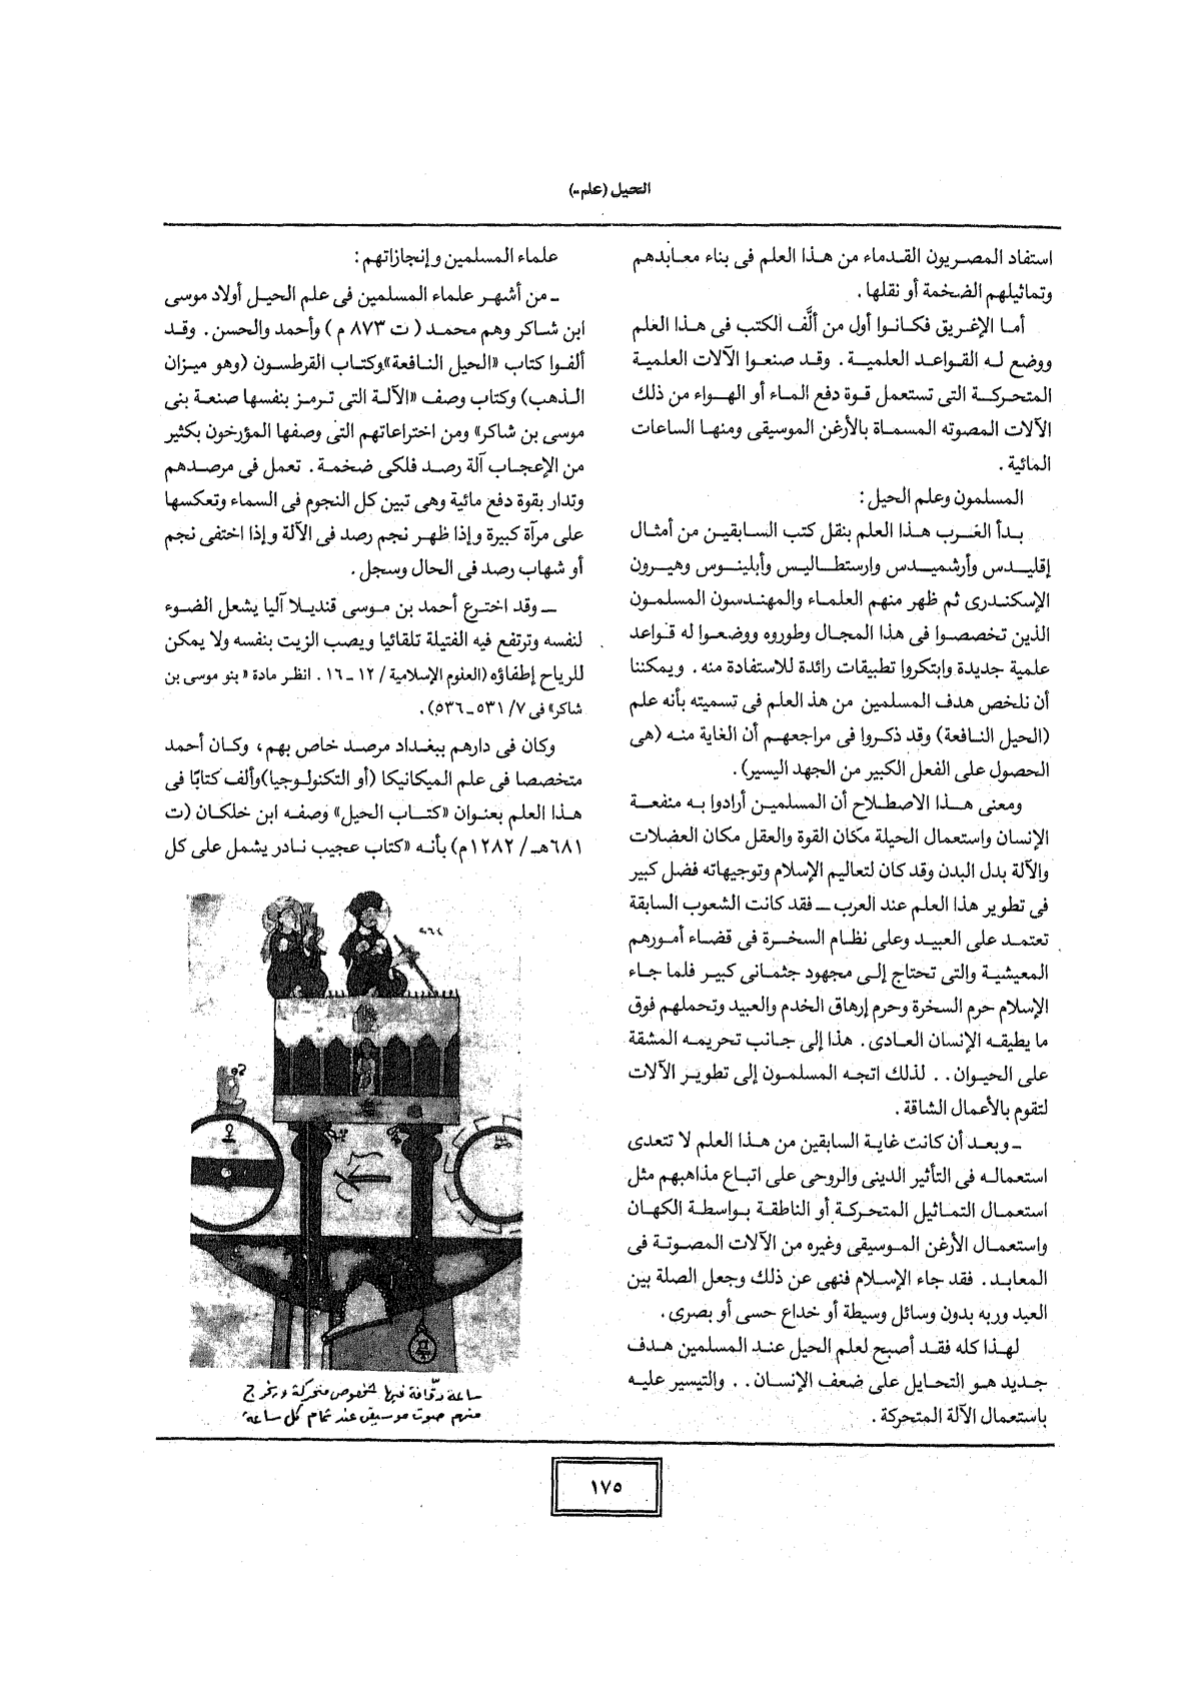 الحيل (علم -)
استفاد المصريون القدماء من هذا العلم فى بناء معابدهم
وتماثيلهم الضخمة أو نقلها .
أما الإغريق فكانوا أول من ألَّف الكتب فى هذا العلم
ووضع له القواعد العلمية . وقد صنعوا الآلات العلمية
المتحركة التى تستعمل قوة دفع الماء أو الهواء من ذلك
الآلات المصوته المسماة بالأرغن الموسيقى ومنها الساعات
المائية .
المسلمون وعلم الحيل :
بدأ العرب هذا العلم بنقل كتب السابقين من أمثال
إقليدس وأرشميدس وارستطاليس وأبلينوس وهيرون
الإسكندرى ثم ظهر منهم العلماء والمهندسون المسلمون
الذين تخصصوا فى هذا المجال وطوروه ووضعوا له قواعد
علمية جديدة وابتكروا تطبيقات رائدة للاستفادة منه . ويمكننا
أن نلخص هدف المسلمين من هذ العلم فى تسميته بأنه علم
(الحيل النافعة) وقد ذكروا فى مراجعهم أن الغاية منه (هى
الحصول على الفعل الكبير من الجهد اليسير) .
ومعنى هذا الاصطلاح أن المسلمين أرادوا به منفعة
الإنسان واستعمال الحيلة مكان القوة والعقل مكان العضلات
والآلة بدل البدن وقد كان لتعاليم الإسلام وتوجيهاته فضل كبير
فى تطوير هذا العلم عند العرب ــ فقد كانت الشعوب السابقة
تعتمد على العبيد وعلى نظام السخرة فى قضاء أمورهم
المعيشية والتى تحتاج إلى مجهود جثمانى كبير فلما جاء
الإسلام حرم السخرة وحرم إرهاق الخدم والعبيد وتحملهم فوق
ما يطيقه الإنسان العادى . هذا إلى جانب تحريمه المشقة
على الحيوان . . لذلك اتجه المسلمون إلى تطوير الآلات
لتقوم بالأعمال الشاقة .
ـ وبعد أن كانت غاية السابقين من هذا العلم لا تتعدى
استعماله فى التأثير الدينى والروحى على اتباع مذاهبهم مثل
استعمال التماثيل المتحركة أو الناطقة بواسطة الكهان
واستعمال الأرغن الموسيقى وغيره من الآلات المصوتة فى
المعابد . فقد جاء الإسلام فنهى عن ذلك وجعل الصلة بين
العبد وربه بدون وسائل وسيطة أو خداع حسى أو بصرى .
لهذا كله فقد أصبح لعلم الحيل عند المسلمين هدف
جديد هو التحايل على ضعف الإنسان . . والتيسير عليه
باستعمال الآلة المتحركة .
علماء المسلمين وإنجازاتهم :
ـ من أشهر علماء المسلمين فى علم الحيل أولاد موسى
ابن شاكر وهم محمد ( ت ٨٧٣ م ) وأحمد والحسن . وقد
ألفوا كتاب «الحيل النافعة» وكتاب القرطسون (وهو ميزان
الذهب) وكتاب وصف «الآلة التى ترمز بنفسها صنعة بنى
موسى بن شاكر» ومن اختراعاتهم التى وصفها المؤرخون بكثير
من الإعجاب آلة رصد فلكى ضخمة . تعمل فى مرصدهم
وتدار بقوة دفع مائية وهى تبين كل النجوم فى السماء وتعكسها
على مرآة كبيرة وإذا ظهر نجم رصد فى الآلة وإذا اختفى نجم
أو شهاب رصد فى الحال وسجل .
ــ وقد اخترع أحمد بن موسى قنديلا آليا يشعل الضوء
لنفسه وترتفع فيه الفتيلة تلقائيا ويصب الزيت بنفسه ولا يمكن
للرياح إطفاؤه (العلوم الإسلامية / ١٢ ـ ١٦ . انظر مادة « بنو موسى بن
شاكر» فى ٧/ ٥٣١ ـ ٥٣٦) .
وكان فى دارهم ببغداد مرصد خاص بهم ، وكان أحمد
متخصصا فى علم الميكانيكا (أو التكنولوجيا) وألف كتابًا فى
هذا العلم بعنوان «كتاب الحيل» وصفه ابن خلكان (ت
٦٨١هـ / ١٢٨٢م) بأنه «كتاب عجيب نادر يشمل على كل
ساعة دقّاقة فيها شخوص متحركة ويخرج
منهم صوت موسيقى عند تمام كل ساعة
١٧٥